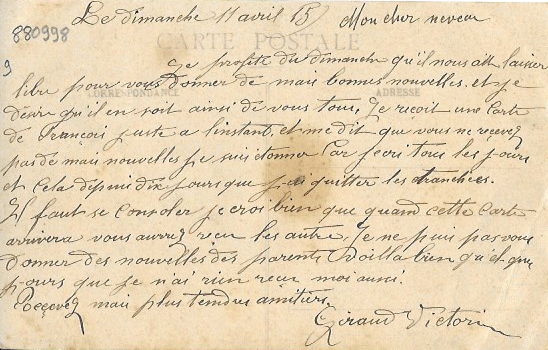 Le dimanche 11 avril 15
Mon cher neveu
880998
9
CARTE POSTALE
Je profite du dimanche qu'il nous ait laisser
libre pour vous donner de mais bonnes nouvelles. et je
CORRESPONDANCE
ADRESSE
désire qu'il en soit ainsi de vous tous, Je reçoit une Carte
de François juste a l'instant, et me dit que vous ne recevez
pas de mais nouvelles je suis étonner Car j'ecri tous les jours
et Cela depuis dix jours que j'ai quitter les tranchées.
Il faut se Consoler je crois bien que quand cette Carte
arrivera vous aurrez reçu les autre, Je ne puis pas vous
donner des nouvelles des parents Voilla bien qu'elque
jours que je n'ai rien reçu moi aussi.
Reçevez mais plus tendres amitiers.
Giraud Victorin